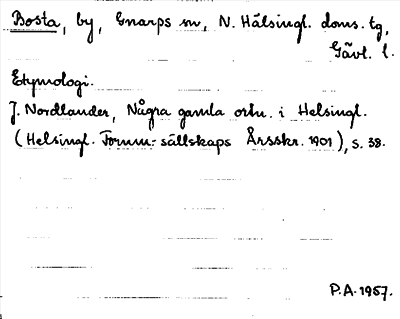 Bosta, by, Enarps sn, N. Hälsingl. doms. tg,
Gävl. l.
Etymologi.
J. Nordlander, Några gamla ortn. i Helsingl.
(Helsingl. Fornm.-sällskaps Årsskr. 1901), s. 38.
P.A. 1957.